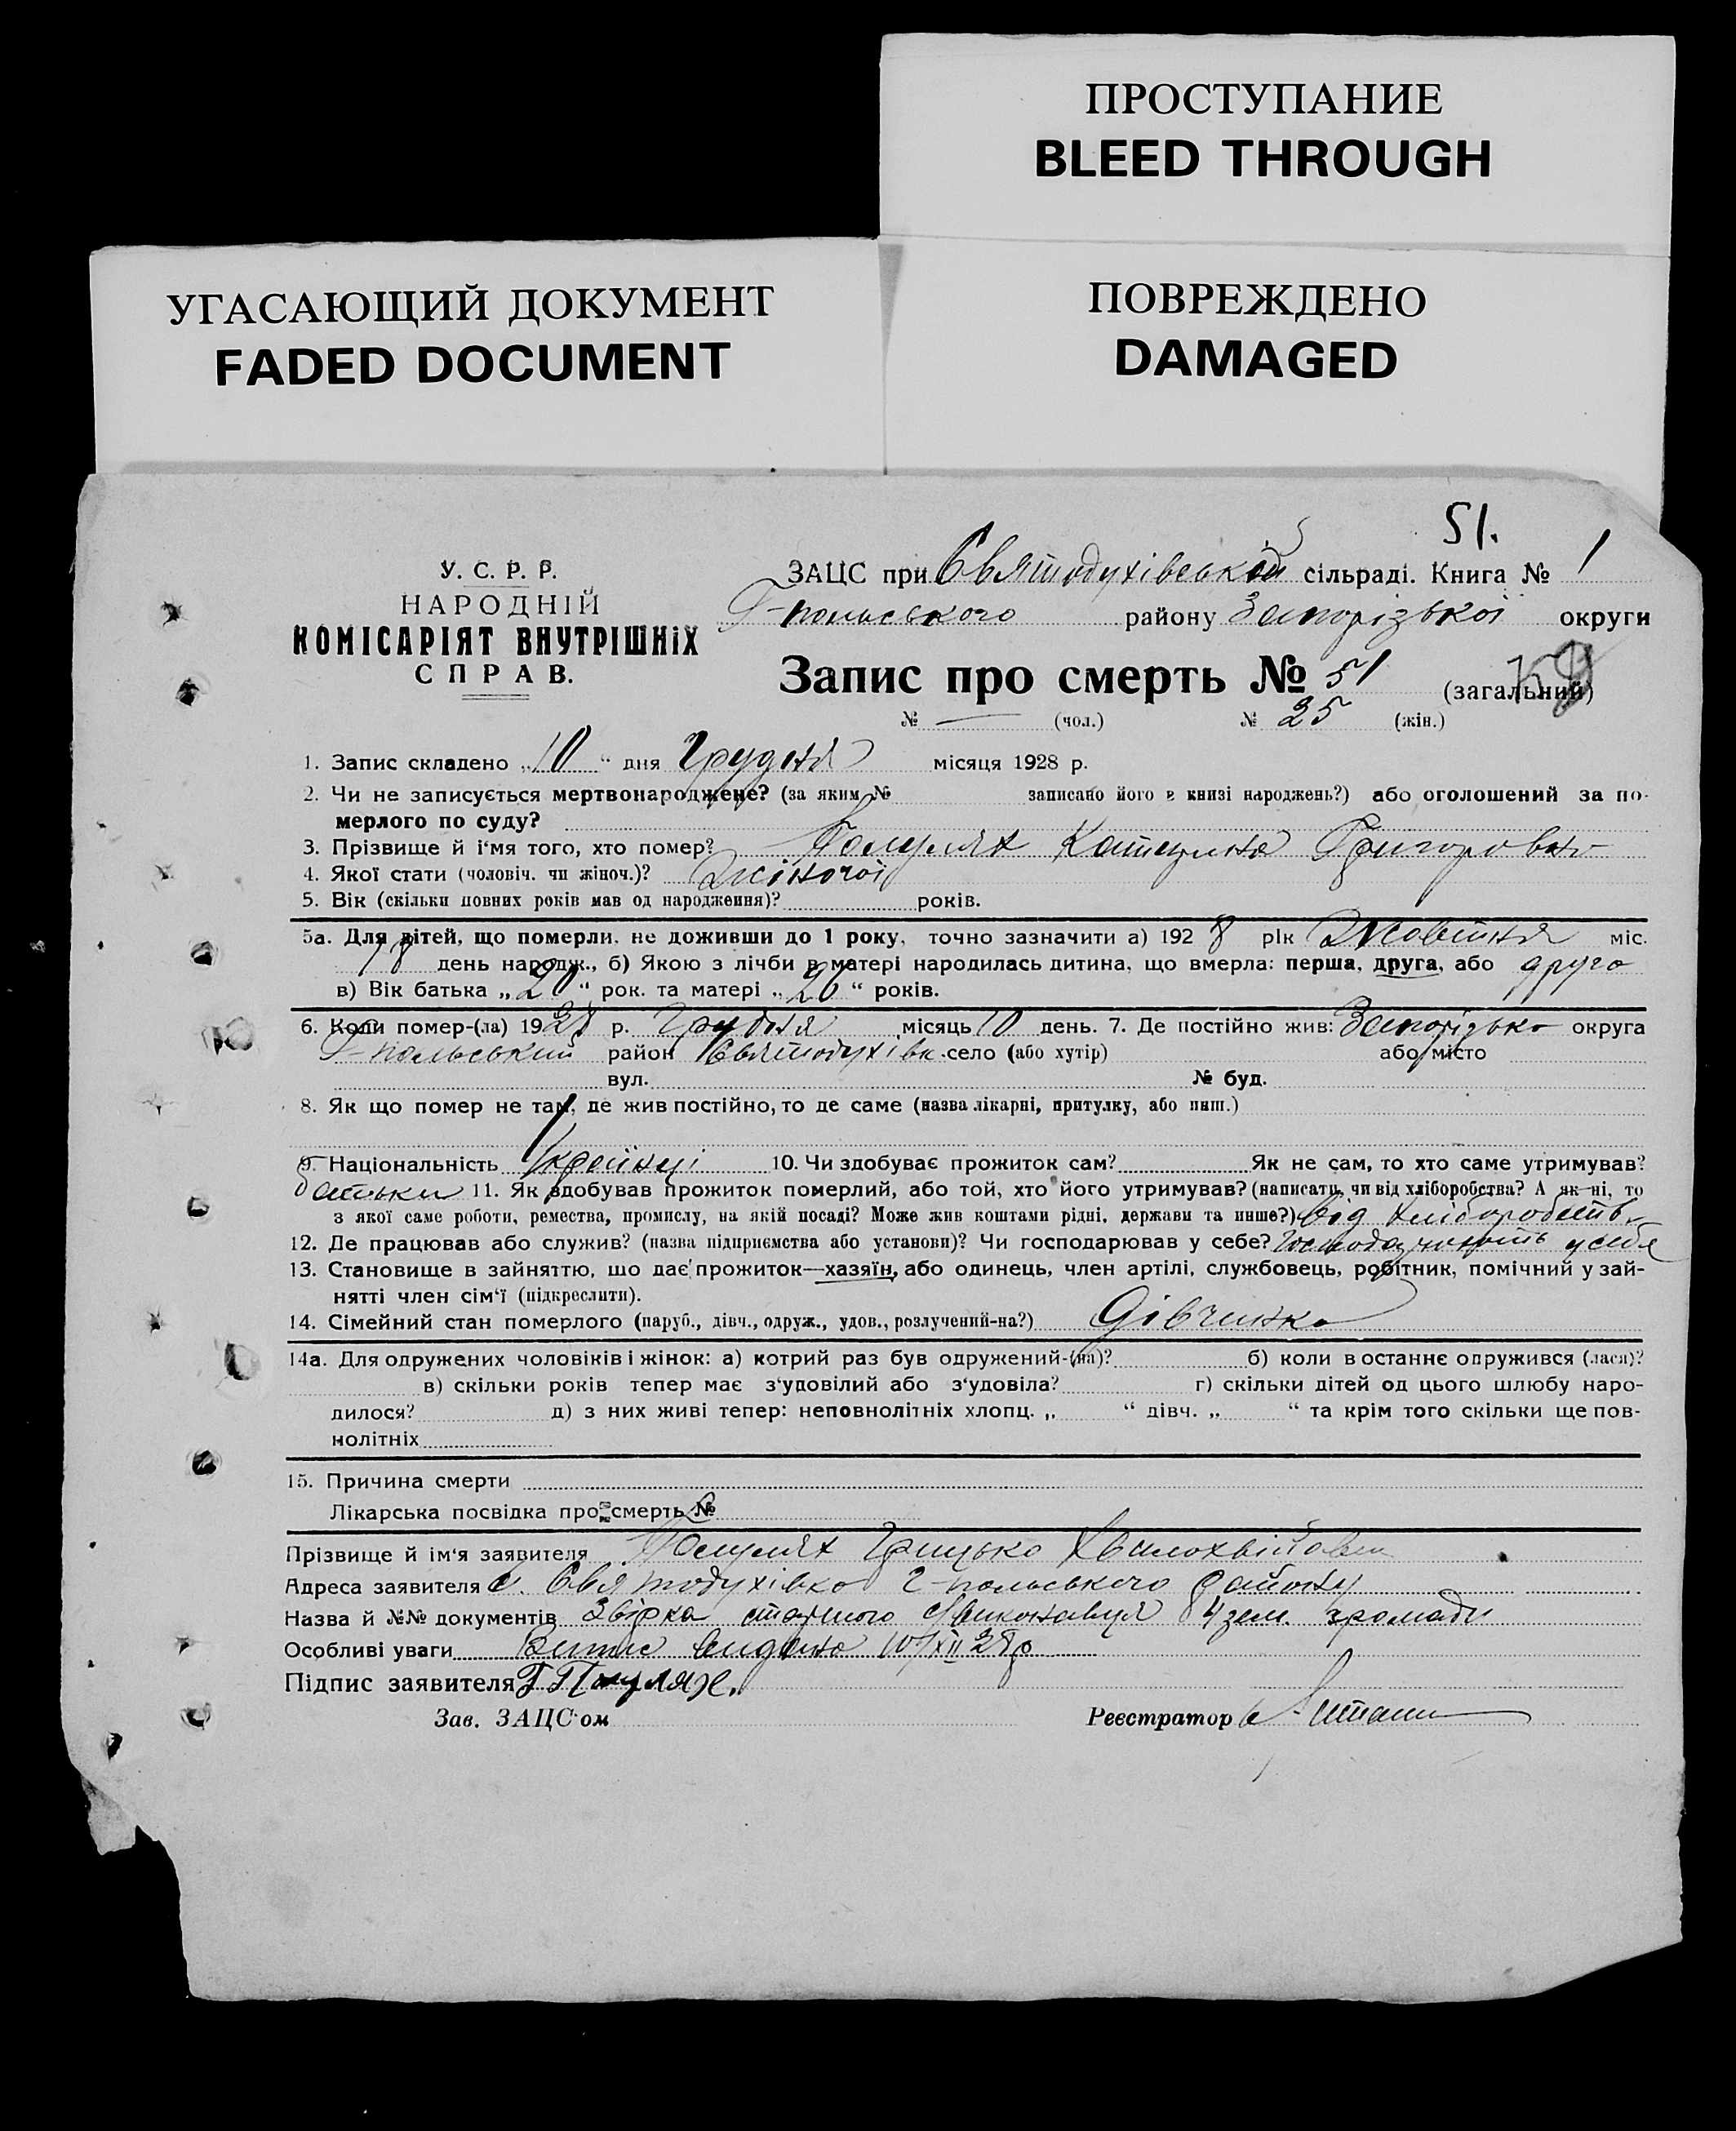 ПРОСТУПАНИЕ
BLEED THROUGH
УГАСАЮЩИЙ ДОКУМЕНТ
FADED DOCUMENT
ПОВРЕЖДЕНО
DAMAGED
51.
У. С. Р. Р.
НАРОДНІЙ
КОМІСАРІЯТ ВНУТРІШНІХ
СПРАВ.
ЗАЦС при Святодухівській сільраді. Книга № 1
Г-польського району Запорізької округи
Запис про смерть № 51 (загальний)
№ — (чол.) № 25 (жін.)
1. Запис складено „10“ дня Грудня місяця 1928 р.
2. Чи не записується мертвонароджене? (за яким № записано його в книзі народжень?) або оголошений за по-
мерлого по суду?
3. Прізвище й і'мя того, хто помер? Катерина Григоровна
4. Якої стати (чоловіч. чи жіноч.)? Жіночої
5. Вік (скільки повних років мав од народження)? років.
5а. Для дітей, що померли, не доживши до 1 року, точно зазначити а) 1928 рік Жовтня міс.
18 день народж., б) Якою з лічби в матері народилась дитина, що вмерла: перша, друга, або друга
в) Вік батька „20“ рок. та матері „26“ років.
6. Коли помер-(ла) 1928 р. Грудня місяць 10 день. 7. Де постійно жив: Запорізька округа
Г-польський район Святодухівк. село (або хутір) або місто
вул. № буд.
8. Як що помер не там, де жив постійно, то де саме (назва лікарні, притулку, або инш.)
9. Національність Українці 10. Чи здобуває прожиток сам? Як не сам, то хто саме утримував?
батьки 11. Як здобував прожиток померлий, або той, хто його утримував? (написати, чи від хліборобства? А як ні, то
з якої саме роботи, ремества, промислу, на якій посаді? Може жив коштами рідні, держави та инше?) від хліборобств.
12. Де працював або служив? (назва підприємства або установи)? Чи господарював у себе? Господарюють у себе
13. Становище в зайняттю, що дає прожиток—хазяїн, або одинець, член артілі, службовець, робітник, помічний у зай-
нятті член сім'ї (підкреслити).
14. Сімейний стан померлого (паруб., дівч., одруж., удов., розлучений-на?) Дівчинка
14а. Для одружених чоловіків і жінок: а) котрий раз був одружений-(на)? б) коли в останнє одружився (лася)?
в) скільки років тепер має з'удовілий або з'удовіла? г) скільки дітей од цього шлюбу наро-
дилося? д) з них живі тепер: неповнолітніх хлопц. „ “ дівч. „ “ та крім того скільки ще пов-
нолітніх
15. Причина смерти
Лікарська посвідка про смерть №
Прізвище й ім'я заявителя Грицько
Адреса заявителя с. Святодухівка Г-польського району
Назва й №№ документів Звірка 4 зем. громади
Особливі уваги Витяг видано 10/XII 28р
Підпис заявителя Г
Зав. ЗАЦС'ом Реєстратор